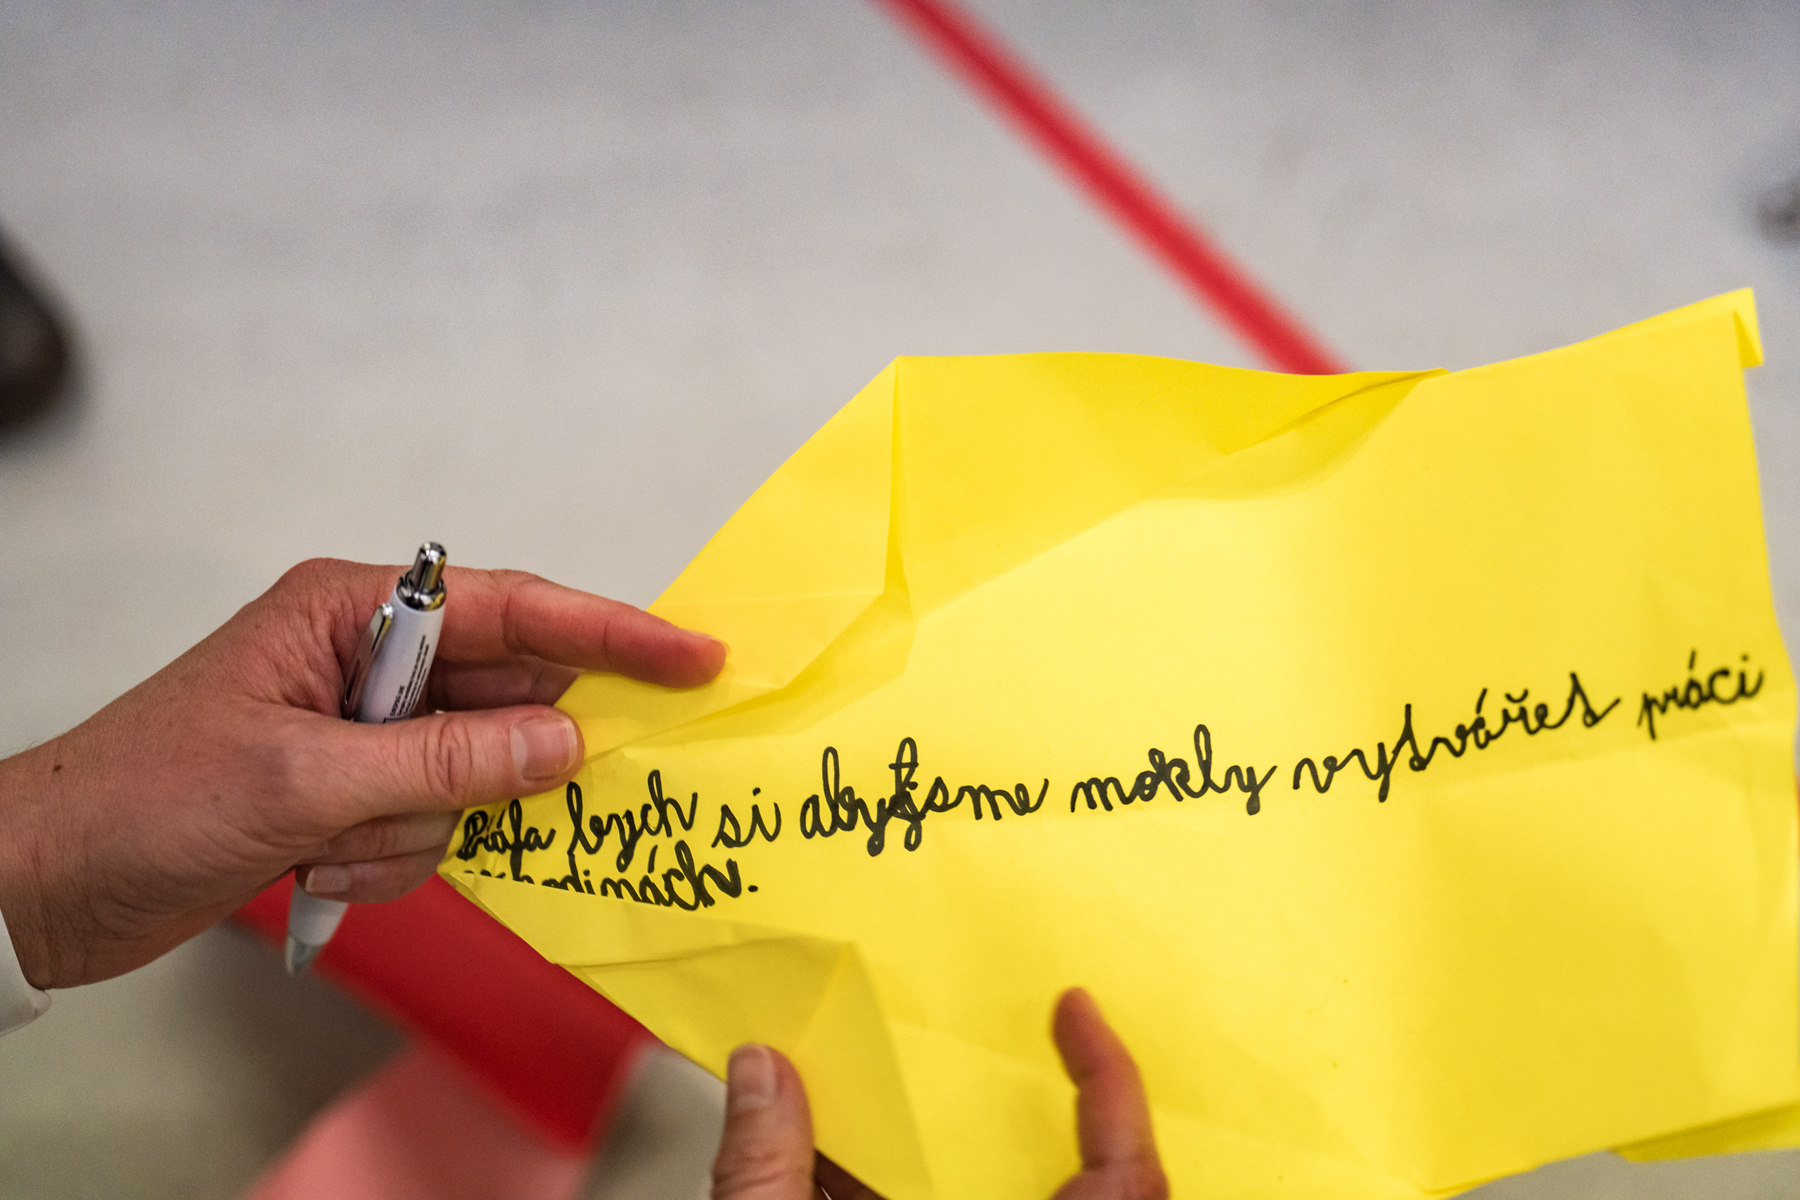 Přála bych si aby jsme mokly vytvářet práci
v hodinách.